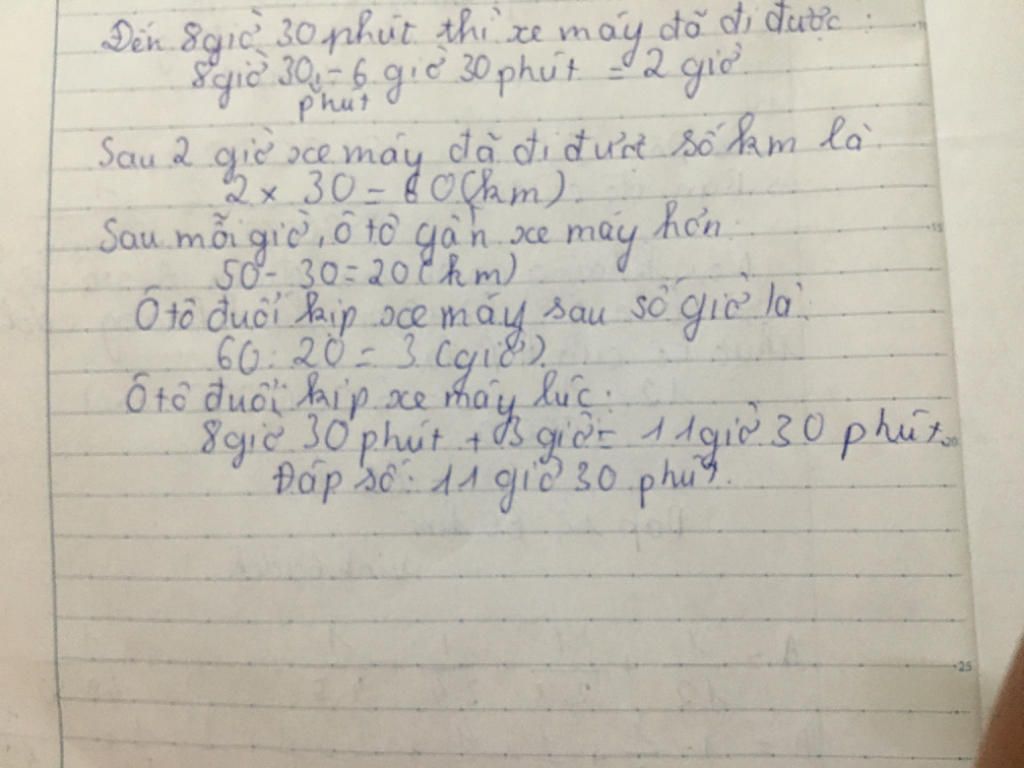 Đến 8giờ 30 phút thì xe máy đã đi được :
8giờ 30 - 6 giờ 30 phút = 2 giờ
phút
Sau 2 giờ xe máy đã đi được số km là
2 x 30 = 60 (km)
Sau mỗi giờ, ô tô gần xe máy hơn
50 - 30 = 20 (km)
Ô tô đuổi kịp xe máy sau số giờ là:
60 : 20 = 3 (giờ)
Ô tô đuổi kịp xe máy lúc:
8giờ 30 phút + 3 giờ = 11giờ 30 phút.
Đáp số: 11 giờ 30 phút.
25